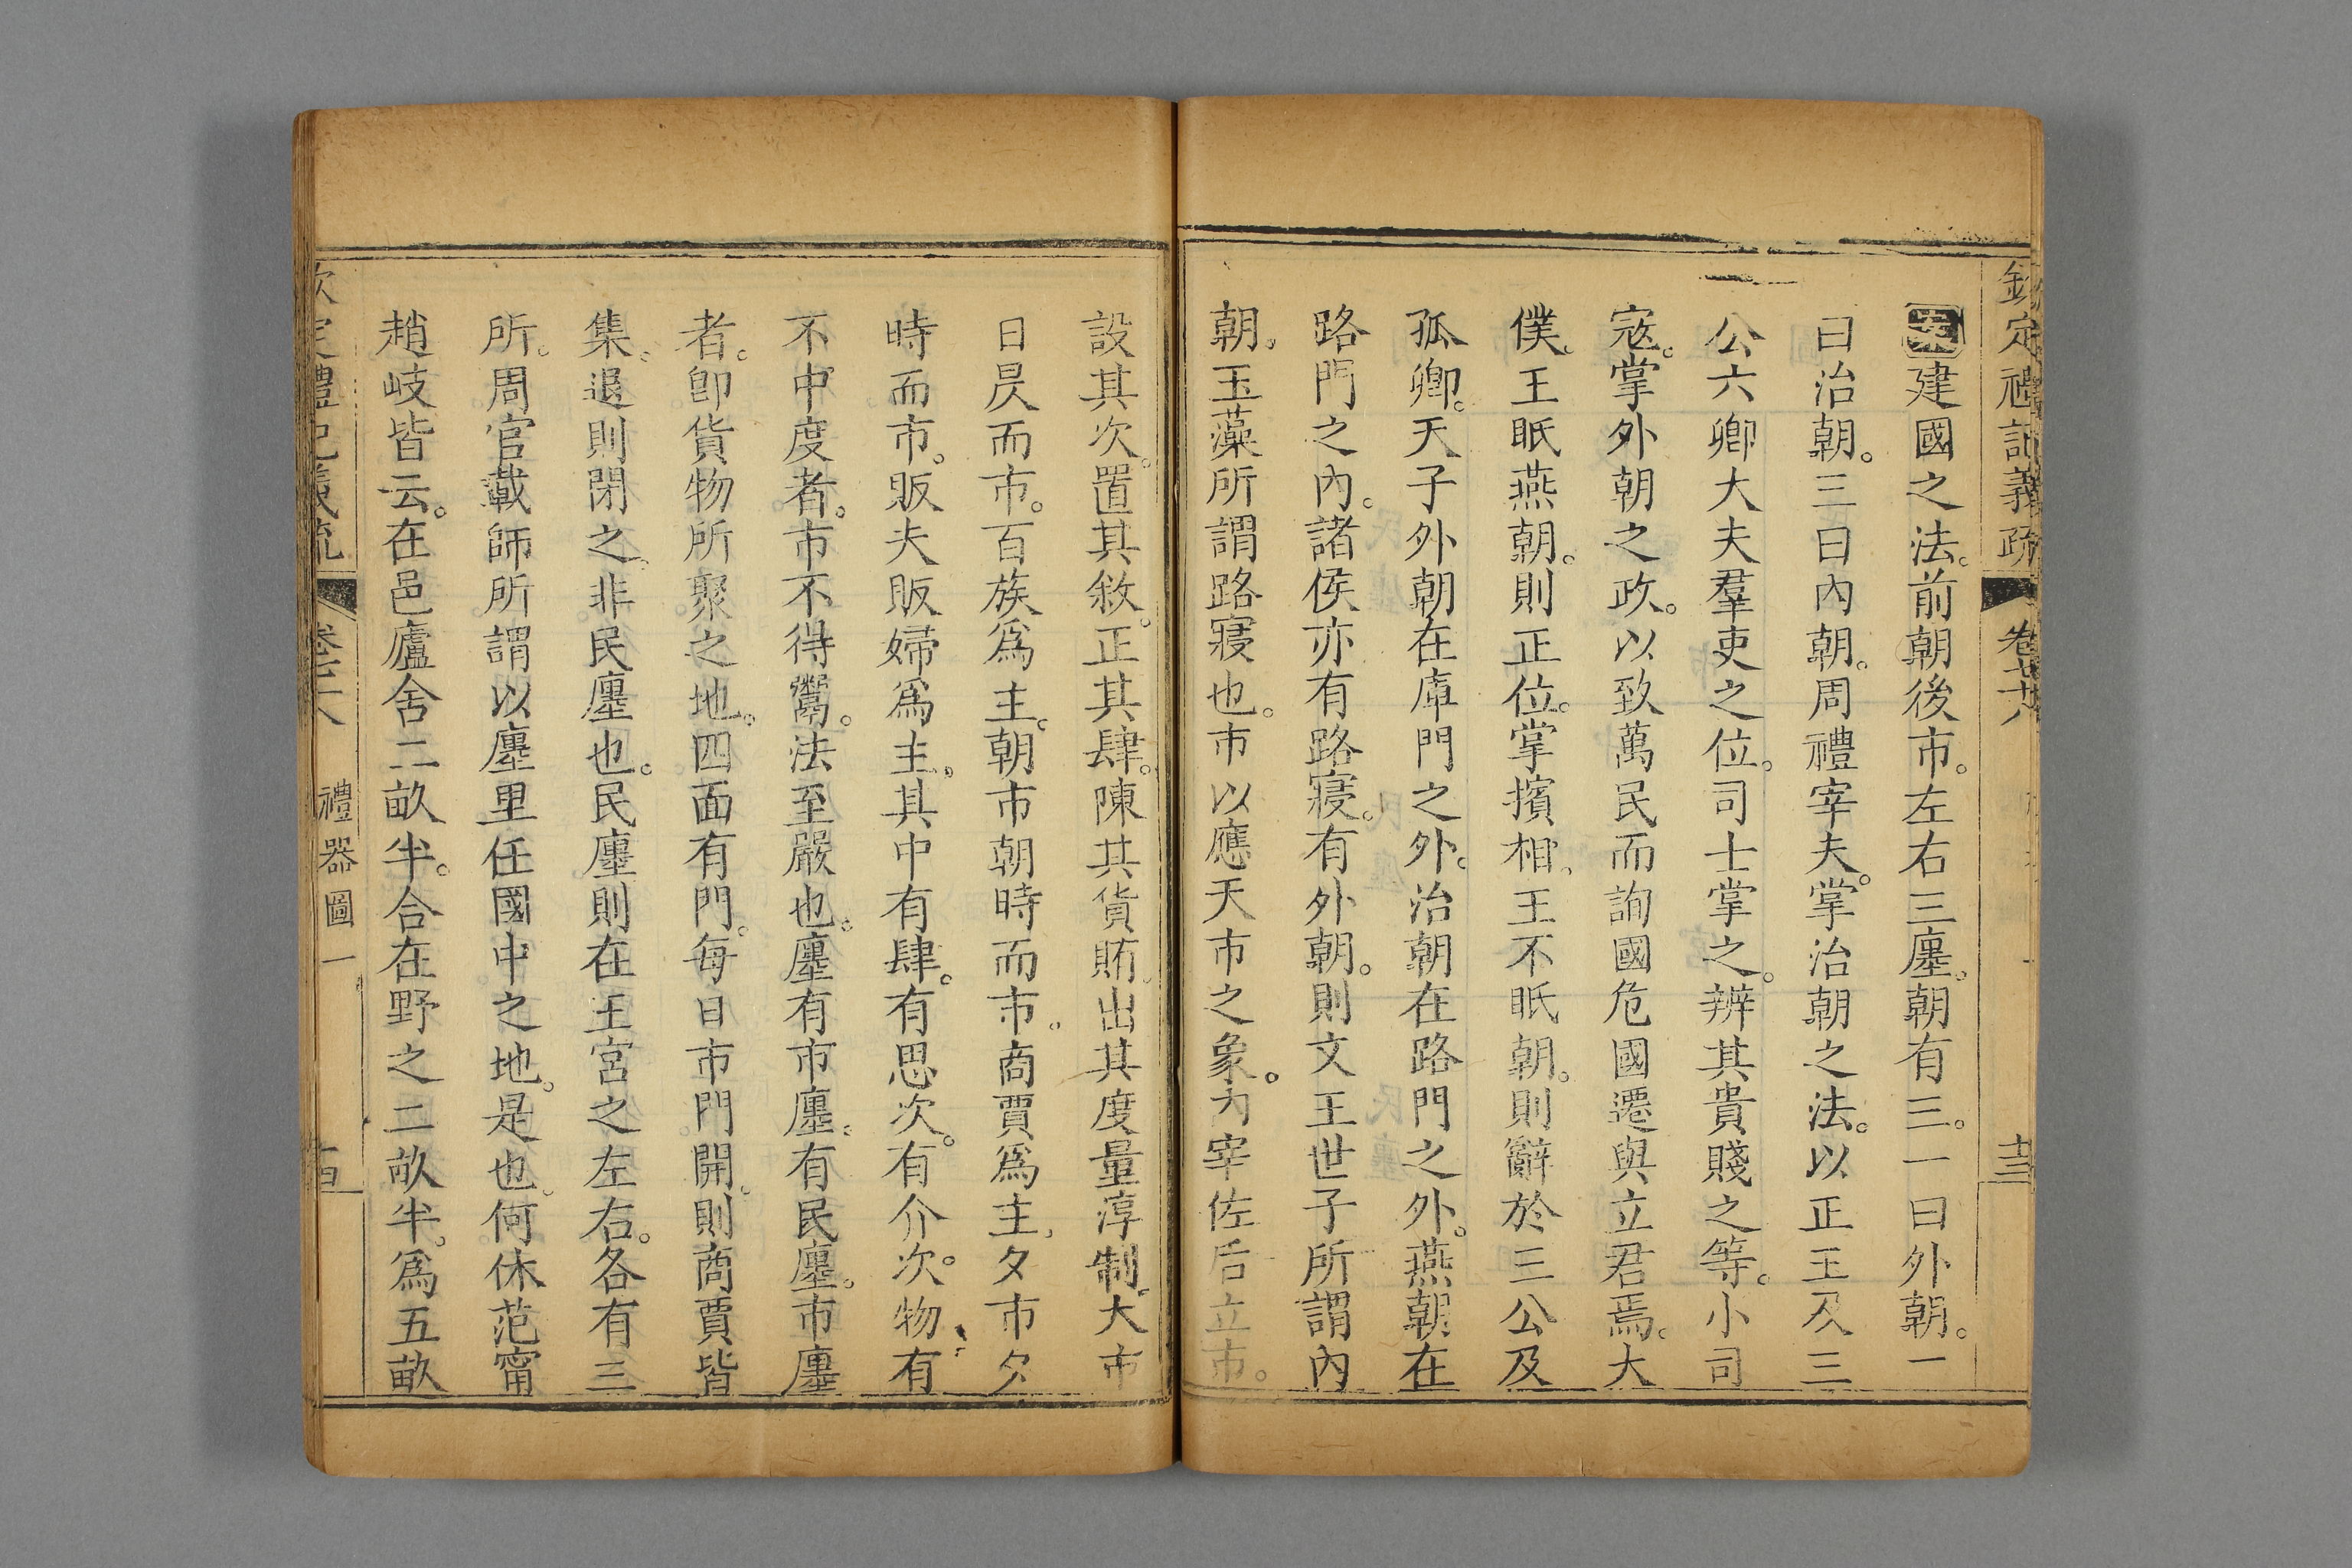 欽定禮記義疏 卷 禮
案建國之法。前朝後市。左右三廛。朝有三。一曰外朝。一
曰治朝。三曰內朝。周禮宰夫。掌治朝之法。以正王及三
公六卿大夫羣吏之位。司士掌之。辨其貴賤之等。小司
寇。掌外朝之政。以致萬民而詢國危國遷與立君焉。大
僕。王眡燕朝。則正位。掌擯相。王不眡朝。則辭於三公及
孤卿。天子外朝在庫門之外。治朝在路門之外。燕朝在
路門之內。諸侯亦有路寢。有外朝。則文王世子所謂內
朝。玉藻所謂路寢也。市以應天市之象。內宰佐后立市。
設其次。置其敘。正其肆。陳其貨賄。出其度量淳制。大市
日昃而市。百族爲主。朝市朝時而市。商賈爲主。夕市夕
時而市。販夫販婦爲主。其中有肆。有思次。有介次。物有
不中度者。市不得鬻。法至嚴也。廛有市廛。有民廛。市廛
者。卽貨物所聚之地。四面有門。每日市門開。則商賈皆
集。退則閉之。非民廛也。民廛則在王宮之左右。各有三
所。周官載師所謂以廛里任國中之地。是也。何休范甯
趙岐皆云。在邑廬舍二畝半。合在野之二畝半。爲五畝
欽定禮記義疏 卷 禮器圖一